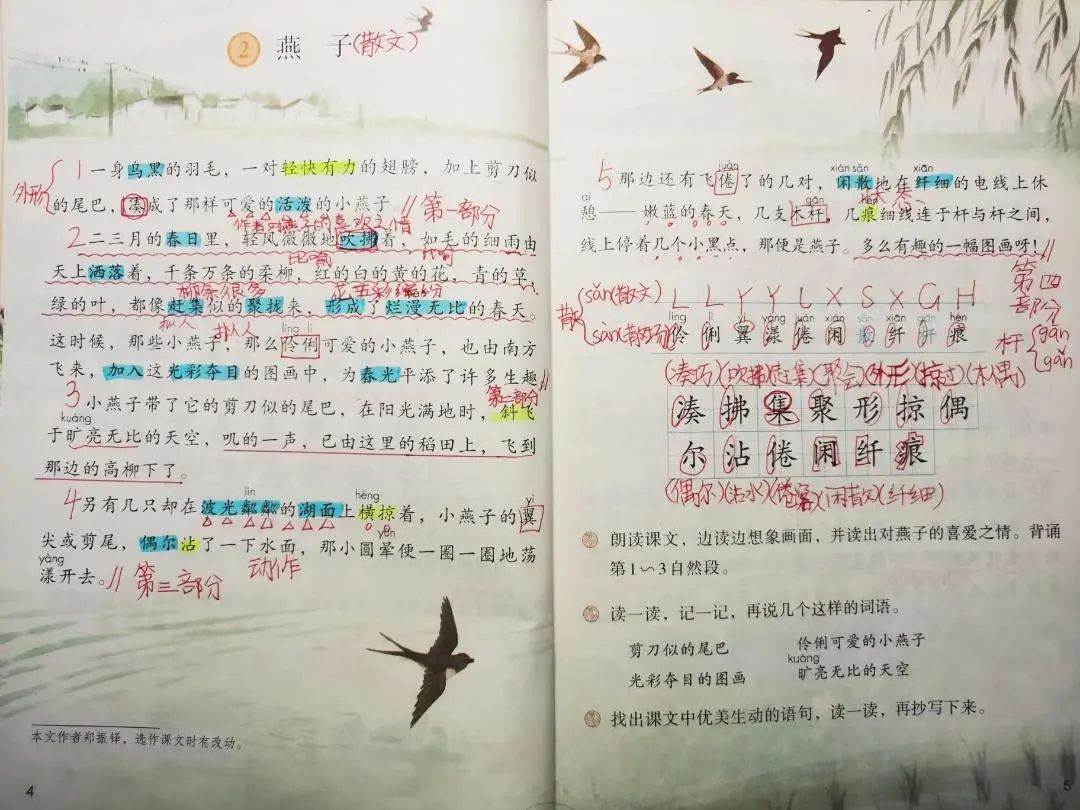 2 燕子(散文)
外形
1一身乌黑的羽毛，一对轻快有力的翅膀，加上剪刀似
的尾巴，凑成了那样可爱的活泼的小燕子 //第一部分
作者对燕子的喜欢之情
2二三月的春日里，轻风微微地吹拂着，如毛的细雨由
比喻
天上洒落着，千条万条的柔柳，红的白的黄的花，青的草，
柳条很多 五彩缤纷
绿的叶，都像赶集似的聚拢来，形成了烂漫无比的春天。
拟人 拟人
líng lì
这时候，那些小燕子，那么伶俐可爱的小燕子，也由南方
飞来，加入这光彩夺目的图画中，为春光平添了许多生趣 //
第二部分
3小燕子带了它的剪刀似的尾巴，在阳光满地时，斜飞
kuàng
于旷亮无比的天空，叽的一声，已由这里的稻田上，飞到
那边的高柳下了。
lín héng yì
4另有几只却在波光粼粼的湖面上横掠着，小燕子的翼
yùn
尖或剪尾，偶尔沾了一下水面，那小圆晕便一圈一圈地荡
yàng
漾开去。//第三部分
动作
本文作者郑振铎，选作课文时有改动。
4
juàn xián sǎn xiān
5那边还有飞倦了的几对，闲散地在纤细的电线上休
qì gān hén
憩——嫩蓝的春天，几支木杆，几痕细线连于杆与杆之间，
线上停着几个小黑点，那便是燕子。多么有趣的一幅图画呀！//
第四部分
散 sǎn(散文)
sàn(散场)
L L Y Y L X S X G H
líng lì yì yàng juàn xián sǎn xiān gān hén
伶 俐 翼 漾 倦 闲 散 纤 杆 痕
杆 gān
gǎn
(凑巧)(吹拂)(赶集)(聚会)(外形)(掠过)(木偶)
凑 拂 集 聚 形 掠 偶
尔 沾 倦 闲 纤 痕
(偶尔)(沾水)(倦容)(闲散)(纤细)
朗读课文，边读边想象画面，并读出对燕子的喜爱之情。背诵
第1～3自然段。
读一读，记一记，再说几个这样的词语。
剪刀似的尾巴 伶俐可爱的小燕子
kuàng
光彩夺目的图画 旷亮无比的天空
找出课文中优美生动的语句，读一读，再抄写下来。
5